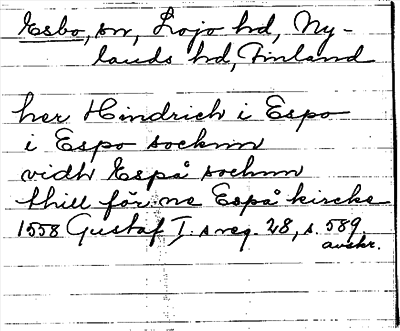 Esbo, sn, Lojo hd, Ny-
lands hd, Finland
her Hindrich i Espo
i Espo socknn
vidh Espå sochnn
thill för:ne Espå kircke
1558 Gustaf I.s reg. 28, s. 589
avskr.